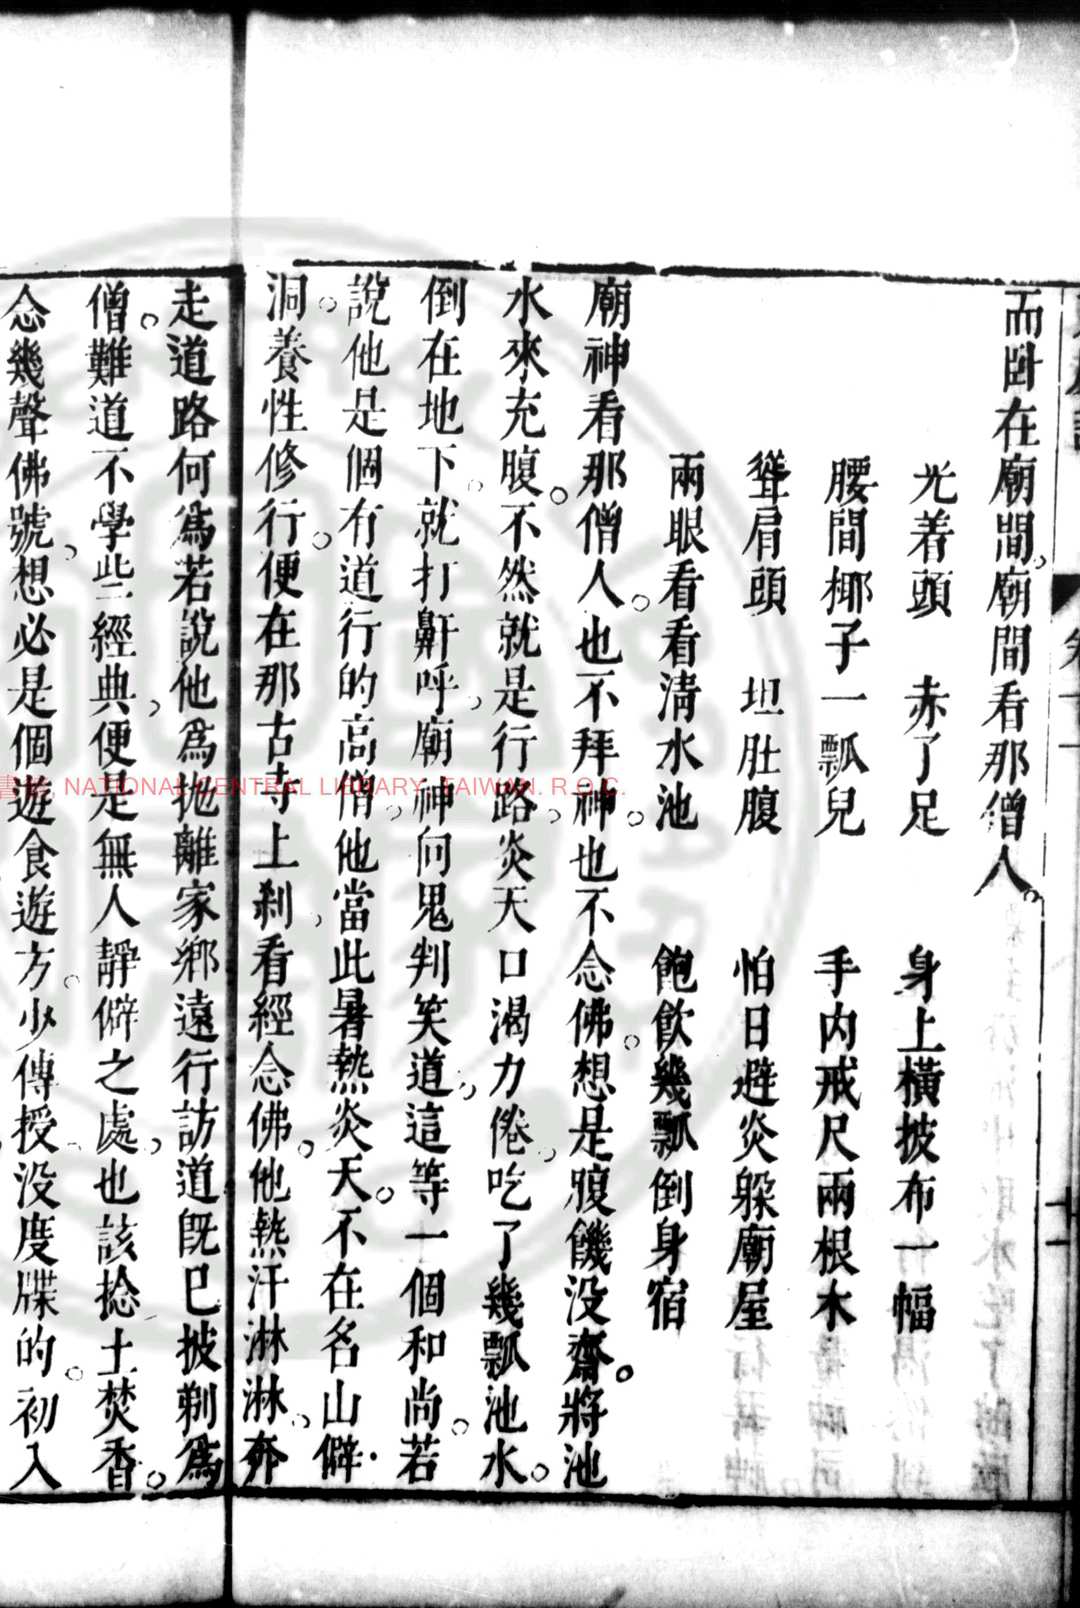 而卧在廟間廟間看那僧人
光着頭 赤了足 身上橫披布一幅
腰間梛子一瓢兒 手内戒尺兩根木
聳肩頭 坦肚腹 怕日避炎躲廟屋
兩眼看看清水池 飽飲幾瓢倒身宿
廟神看那僧人也不拜神也不念佛想是腹饑没齋將池
水來充腹不然就是行路炎天口渴力倦吃了幾瓢池水
倒在地下就打鼾呼廟神向鬼判笑道這等一個和尚若
說他是個有道行的高僧他當此暑熱炎天不在名山僻
洞養性修行便在那古寺上刹看經念佛他熱汗淋淋奔
走道路何為若說他為拋離家鄉遠行訪道既已披剃為
僧難道不學些經典便是無人靜僻之處也該捻土焚香
念幾聲佛號想必是個遊食遊方少傳授没度牒的初入
書館 NATIONAL CENTRAL LIBRARY, TAIWAN. R.O.C.